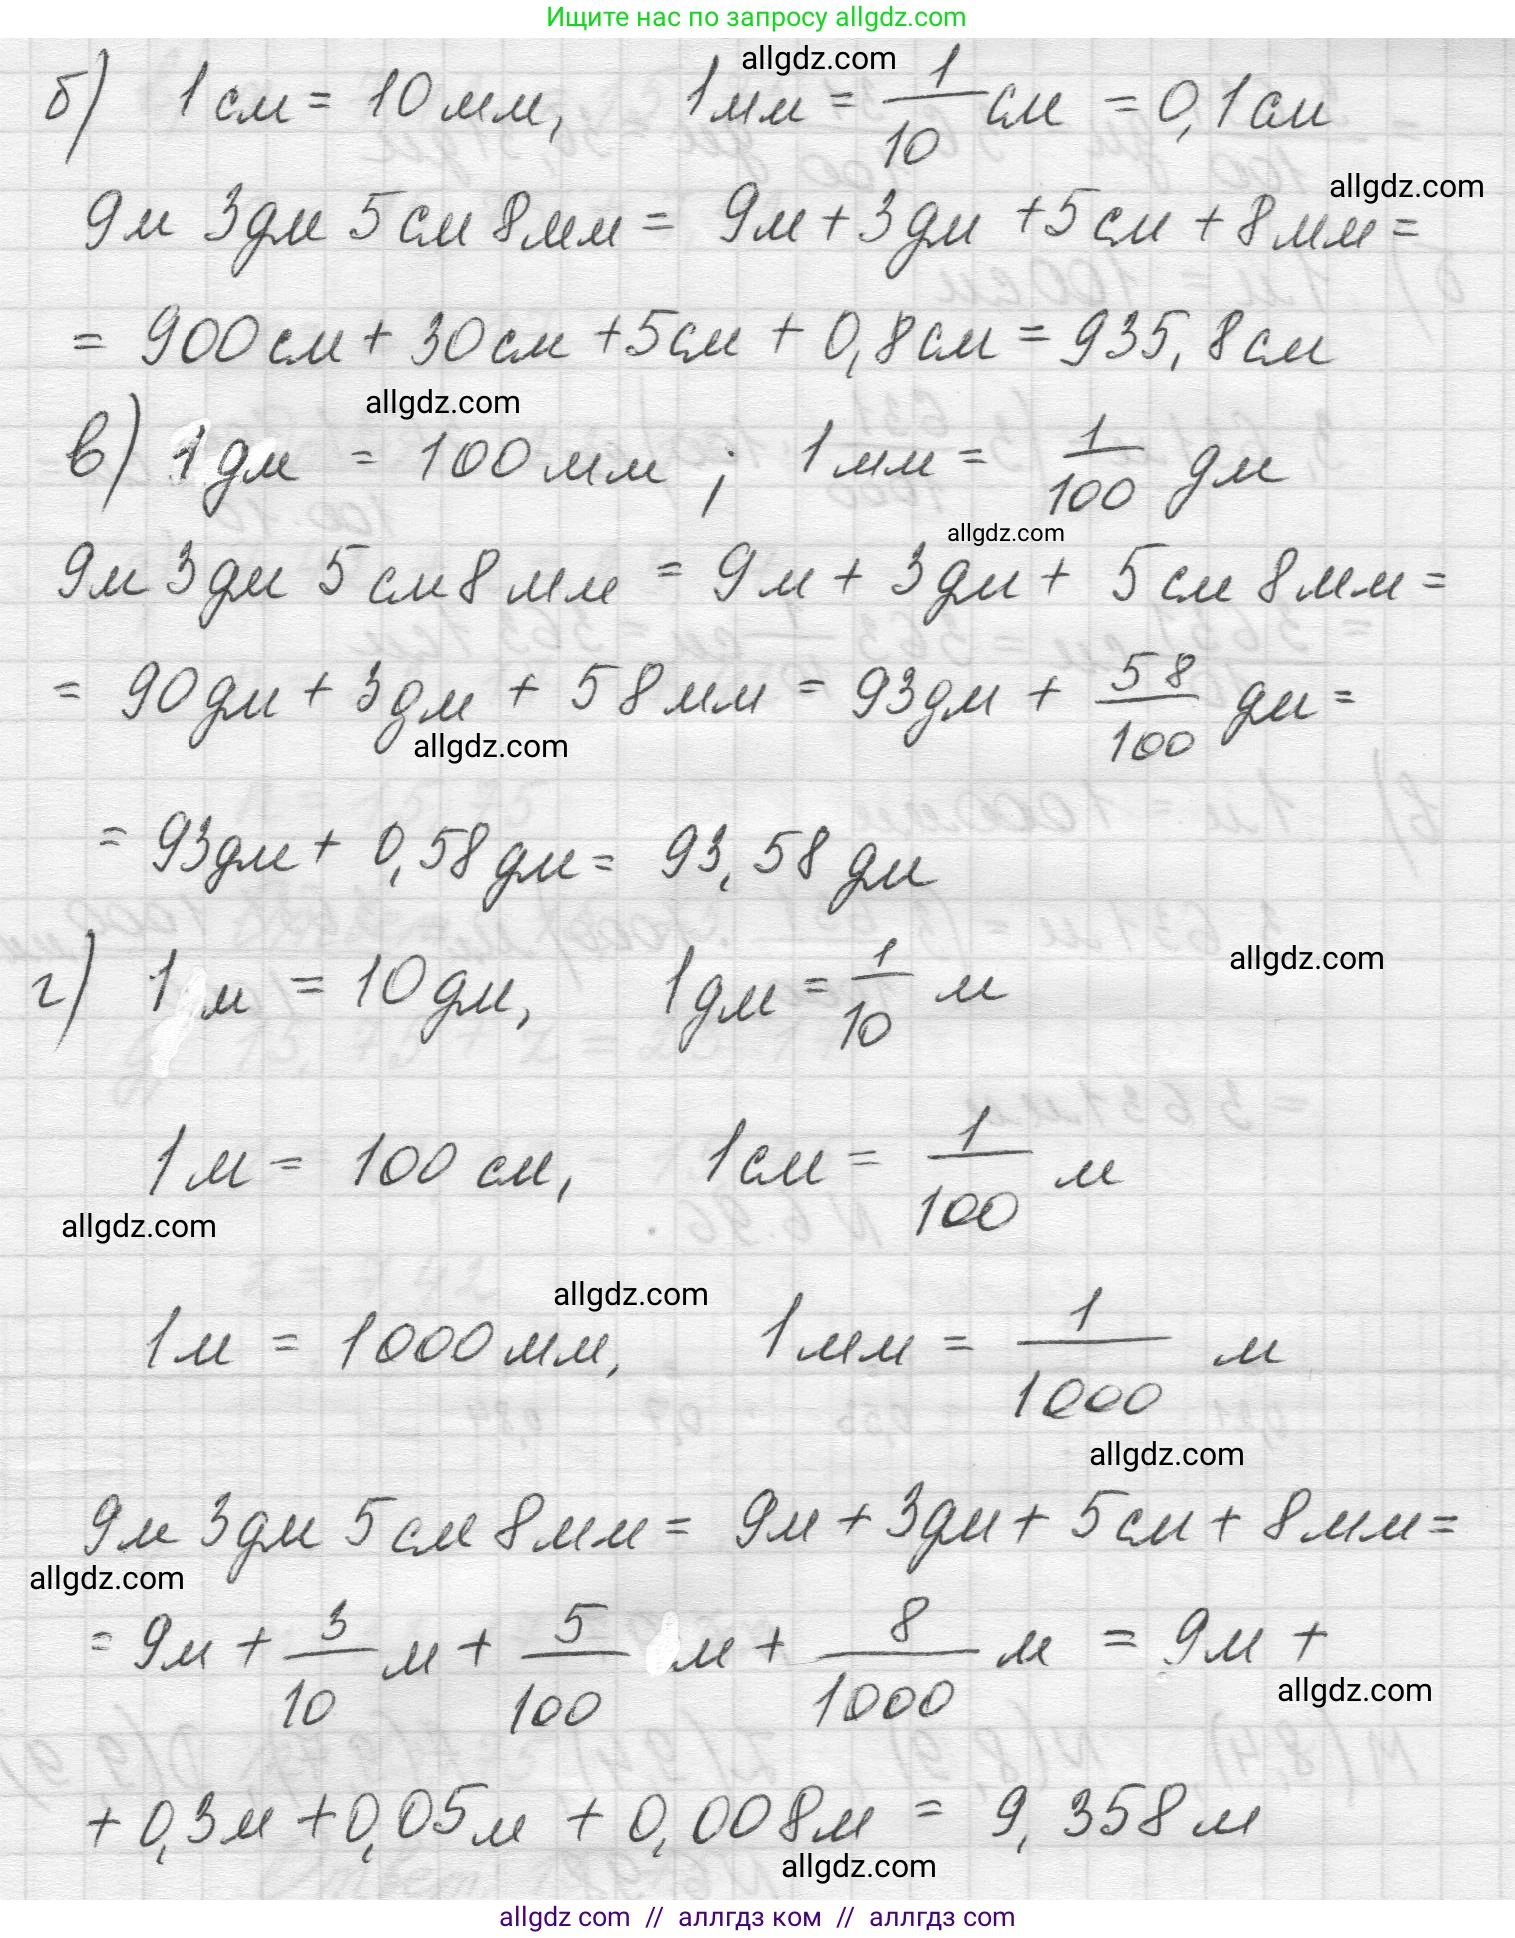 Ищите нас по запросу allgdz.com
allgdz.com
б) 1 см = 10 мм, 1 мм = 1/10 см = 0,1 см
allgdz.com
9 м 3 дм 5 см 8 мм = 9 м + 3 дм + 5 см + 8 мм =
= 900 см + 30 см + 5 см + 0,8 см = 935,8 см
allgdz.com
в) 1 дм = 100 мм; 1 мм = 1/100 дм
allgdz.com
9 м 3 дм 5 см 8 мм = 9 м + 3 дм + 5 см 8 мм =
= 90 дм + 3 дм + 58 мм = 93 дм + 58/100 дм =
allgdz.com
= 93 дм + 0,58 дм = 93,58 дм
allgdz.com
г) 1 м = 10 дм, 1 дм = 1/10 м
1 м = 100 см, 1 см = 1/100 м
allgdz.com
allgdz.com
1 м = 1000 мм, 1 мм = 1/1000 м
allgdz.com
9 м 3 дм 5 см 8 мм = 9 м + 3 дм + 5 см + 8 мм =
allgdz.com
= 9 м + 3/10 м + 5/100 м + 8/1000 м = 9 м +
allgdz.com
+ 0,3 м + 0,05 м + 0,008 м = 9,358 м
allgdz.com
allgdz com // аллгдз ком // аллгдз com